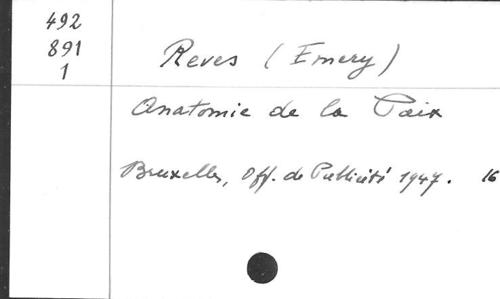 492
891
1
Reves (Emery)
Anatomie de la Paix
Bruxelles, Off. de Publicité 1947. 16